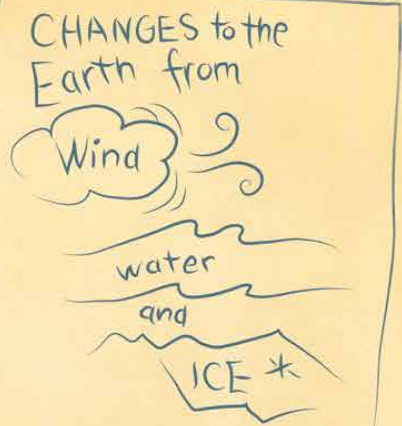 CHANGES to the
Earth from
Wind
water
and
ICE